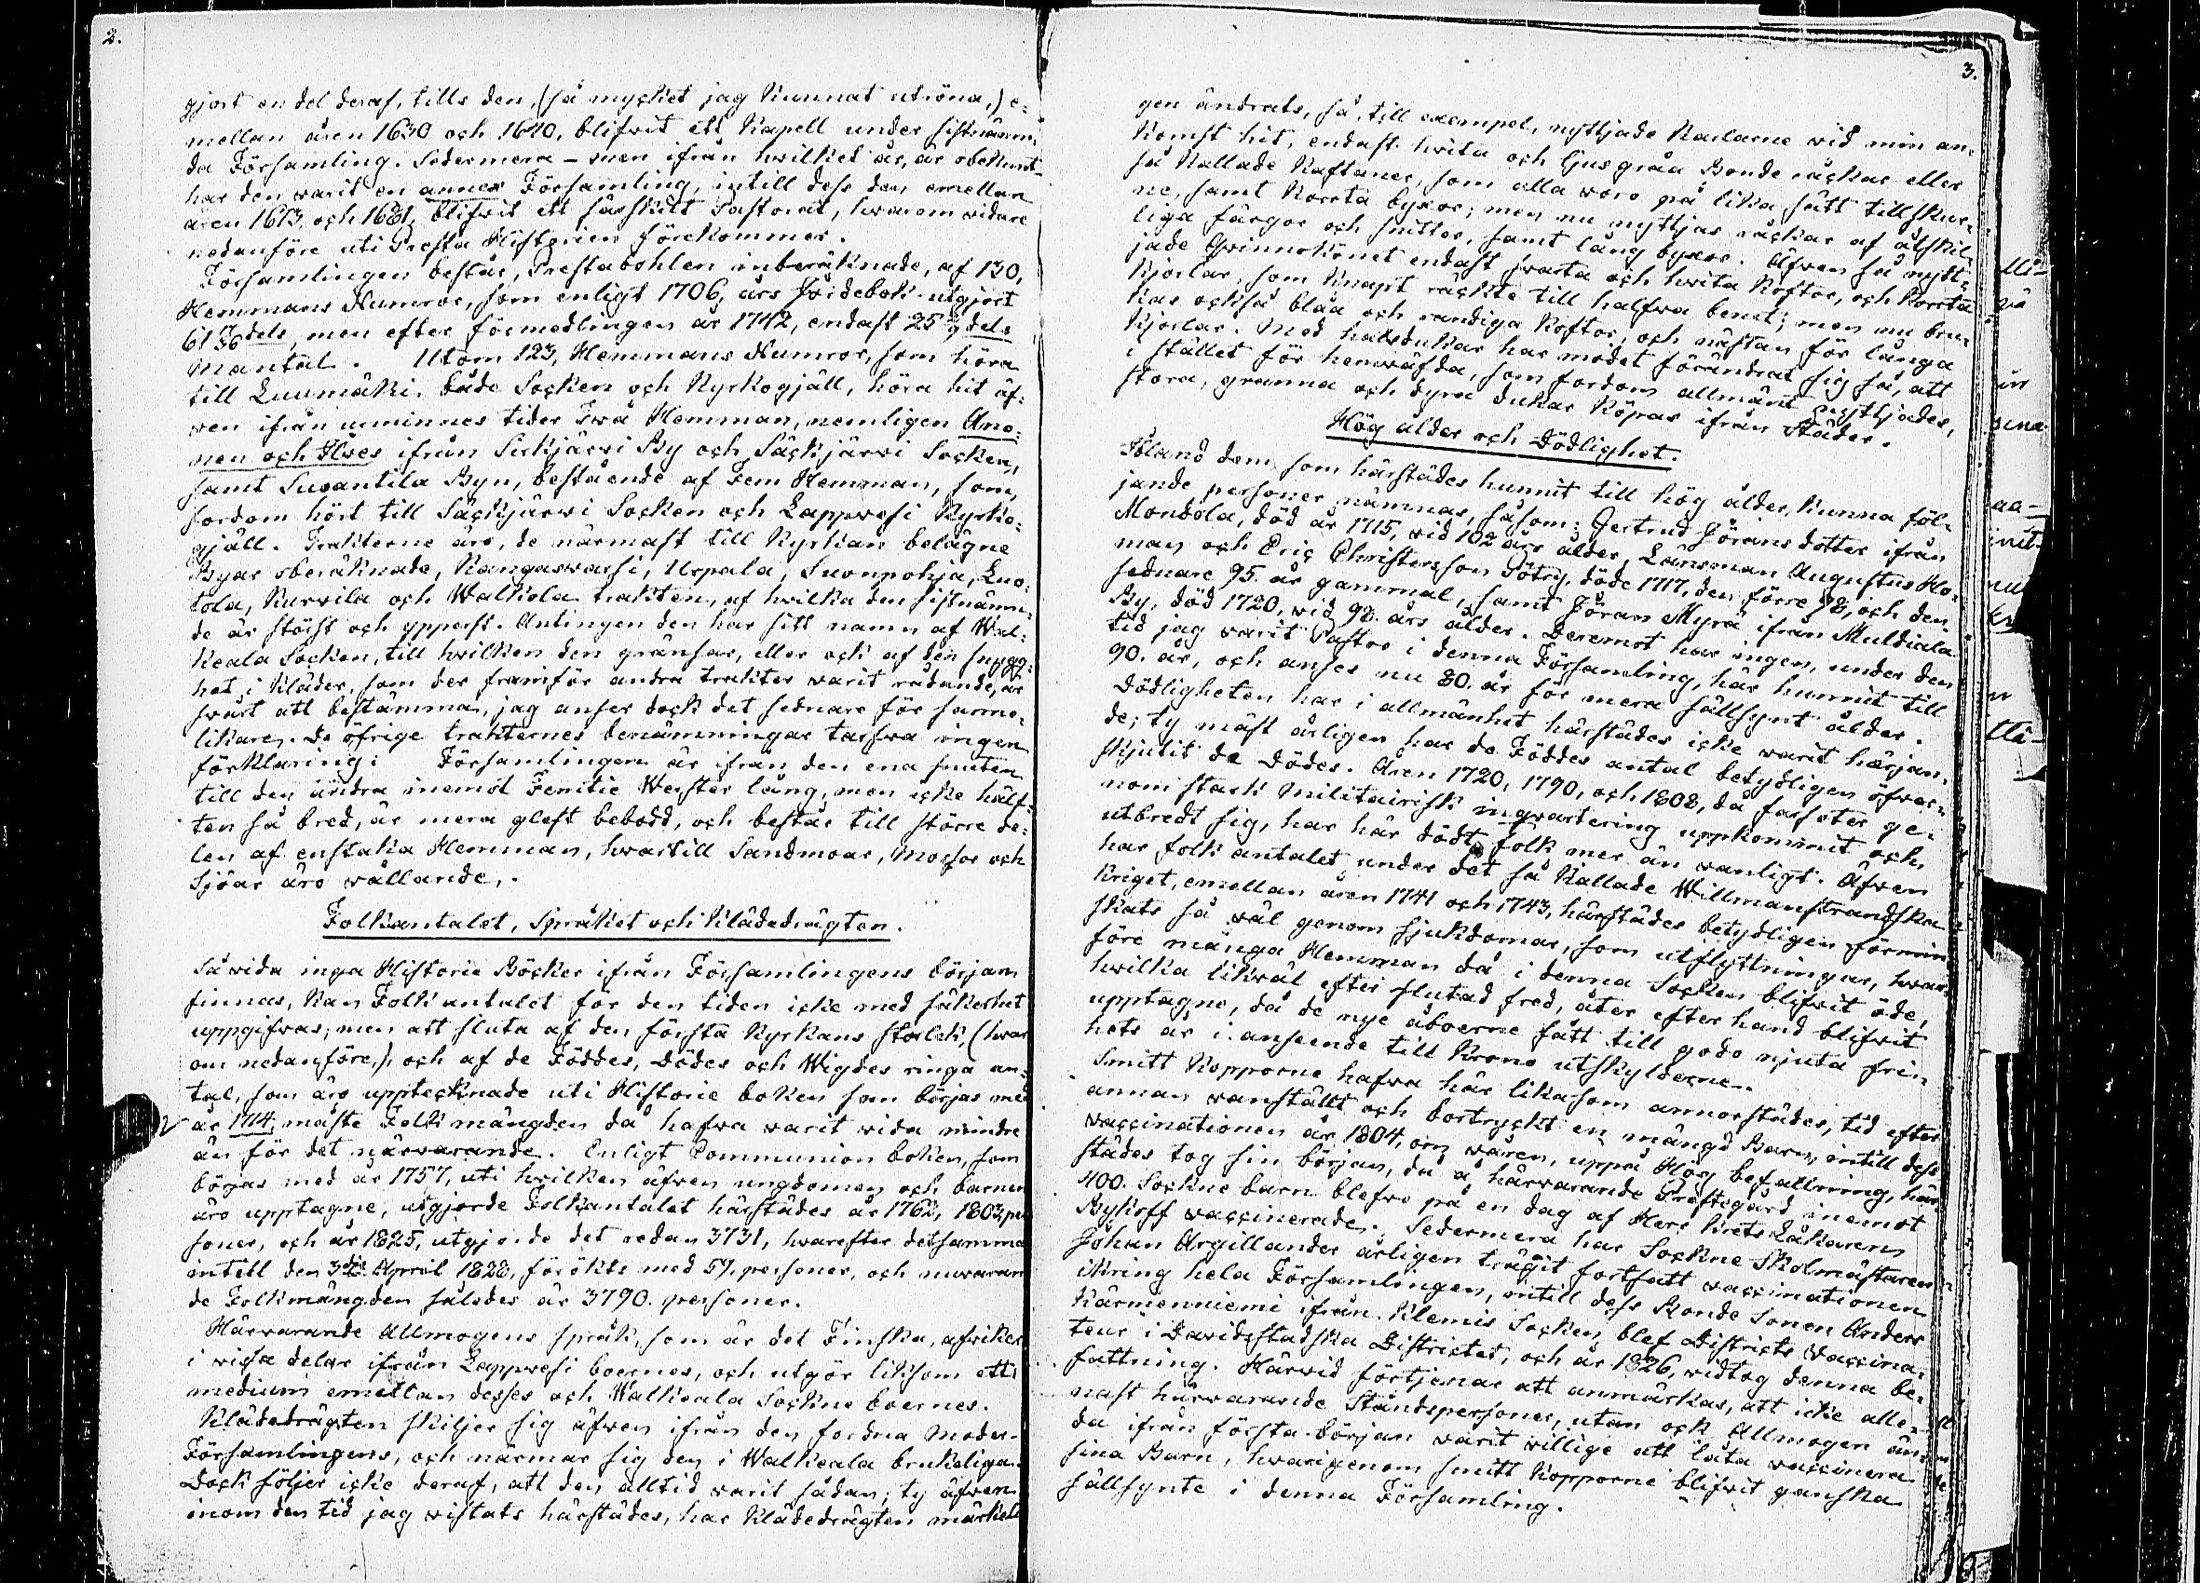 2.
gjort en del deraf, tills den, (så mycket jag kunnat utröna,) e-
mellan åren 1630 och 1640, blifvit ett Kapell under sistnämn-
da Församling. Sedermera – men ifrån hvilket år, är obekant –
har den warit en annex Församling, intill dess den emellan
åren 1673, och 1681, blifvit ett särskilt Pastorat, hwarom widare
nedanföre uti Presta Historien förekommer.
Församlingen består, Prestabohlen inberäknade, af 130,
Hemmans Numror, som enligt 1706, års Jordebok utgjort
dels, men efter förmedlingen år 1742, endast dels
Mantal. Utom 123, Hemmans Numror, som höra
till Luumäki, både Socken och Kyrkogjäll, höra hit äf-
wen ifrån urminnes tider Twå Hemman, nemligen Ano-
nen och Ilves ifrån Sirkjärvi By och Säckjärvi Socken,
samt Suoantila Byn, bestående af Fem Hemman, som,
fordom hört till Säckjärvi Socken och Lappwesi Kyrko-
gjäll. Trakterne äro, de närmast till Kyrkan belägne
Byar oberäknade, Kangaswarsi, Urpala, Suonpohja, Luo-
tola, Kurvila och Walkola trakten, af hvilka den sistnämn-
de är störst och ypperst. Antingen den har fått namn af Wal-
keala Socken, till hvilken den gränsar, eller ock af den snygg-
het i Kläder, som der framför andra trakter warit rådande, är
swårt att bestämma, jag anser dock det sednare för sanno-
likare. De öfrige trakternes benämningar tarfwa ingen
förklaring. Församlingen är ifrån den ena punkten
till den andra inemot Femtie Werster lång, men icke hälf-
ten så bred, är mera glest bebodd, och består till större de-
len af enstaka Hemman, hwartill Sandmoar, Mossor och
Sjöar äro wållande.
Folkantalet, Språket och Klädedrägten.
Såwida inga Historie Böcker ifrån Församlingens början
finnas, kan Folkantalet för den tiden icke med säkerhet
uppgifwas; men att sluta af den första Kyrkans storlek, (hwar
om nedanföre,) och af de Föddes, Dödes och Wigdes ringa an-
tal, som äro upptecknade uti Historie boken som börjas med
år 1714, måste Folkmängden då hafwa warit wida mindre
än för det närwarande. Enligt Communion boken, som
börjas med år 1757, uti hwilken äfwen ungdomen och barnen
äro upptagne, utgjorde Folkantalet härstädes år 1762, 1803, per
soner, och år 1825, utgjorde det redan 3731, hwarefter detsamma
intill den 3die April 1828, förökts med 59, personer, och nuwaran
de Folkmängden således är 3790. personer.
Härwarande Allmogens språk, som är det Finska, afwiker
i wissa delar ifrån Lappwesi boernes, och utgör liksom ett
medium emellan desses och Walkeala Sockne boernes.
Klädedrägten skiljer sig äfwen ifrån den fordna Moder-
Församlingens, och närmar sig den i Walkeala brukeliga.
Dock följer icke deraf, att den alltid warit sådan; ty äfwen
inom den tid jag wistats härstädes, har Klädedrägten märkeli
3.
gen ändrats, så, till exempel, nyttjade Karlarne wid min an-
komst hit, endast hwita och ljusgråa Bonde råckar eller
så kallade Kaftaner, som alla woro på lika sätt tillskur-
ne, samt korrta byxor; men nu nyttjas råckar af åtskil-
liga färgor och snitter, samt lång byxor. Äfwen så nytt-
jade Qwinnokönet endast swarta och hwita Koftor, och korrta
Kjorlar, som knapt räckte till halfwa benet; men nu bru-
kas också blåa och randiga Koftor, och nästan för långa
Kjorlar. Med halsdukar har modet förändrat sig så, att
i stället för hemwäfda, som fordom allmänt nyttjades,
stora, granna och dyra dukar köpas ifrån Städer.
Hög ålder och Dödlighet.
Ibland dem, som härstädes hunnit till hög ålder, kunna föl-
jande personer nämnas, såsom: Gertrud Jörans dotter ifrån
Mondola, död år 1715, wid 102 års ålder, Länsman Augustus Ho-
man och Eric Christersson Pötry, döde 1717, den förre 98, och den
sednare 95. år gammal, samt Jöran Myrä ifrån Muldiala
By, död 1720, wid 92. års ålder. Deremot har ingen, under den
tid jag warit Pastor i denna Församling, här hunnit till
90. år, och anses nu 80. år för mera sällsynt ålder.
Dödligheten har i allmänhet härstädes icke warit härjan-
de; ty mäst årligen har de Föddes antal betydligen öfwer-
skjutit de Dödes. Åren 1720, 1790, och 1808, då farsoter ge-
nom stark Militairisk inqvartering uppkommit och
utbredt sig, har här dödt folk mer än wanligt. Äfwen
har folkantalet under det så kallade Willmanstrandska
Kriget, emellan åren 1741 och 1743, härstädes betydligen förmin
skats så wäl genom sjukdomar, som utflyttningar, hwar-
före många Hemman då i denna Socken blifwit öde,
hwilka likwäl efter slutad fred, åter efter hand blifwit
upptagne, då de nye åboerne fått till godo njuta fri-
hets år i anseende till Krono utskylderne.
Smitt Kopporne hafwa här likasom annorstädes, tid efter
annan wanställt och bortryckt en mängd Barn, intill dess
vaccinationen år 1804, om wåren, uppå Hög befallning, här
städes tog sin början, då å härwarande Prestegård inemot
400. Sockne barn blefwo på en dag af Herr Krets Läkaren
Bykoff vaccinerade. Sedermera har Sockne Skolmästaren
Johan Argillander årligen trägit fortsatt vaccinationen
ikring hela Församlingen, intill dess Bonde Sonen Anders
Kärmenniemi ifrån Klemis Socken, blef Districts Vaccina-
teur i Davidsstadska Districtet, och år 1826, widtog denna be-
fattning. Härwid förtjenar att anmärkas, att icke alle-
nast härwarande Ståndspersoner, utan ock Allmogen än-
da ifrån första början warit willige att låta vaccinera
sina Barn, hwarigenom smitt Kopporne blifwit ganska
sällsynte i denna Församling.